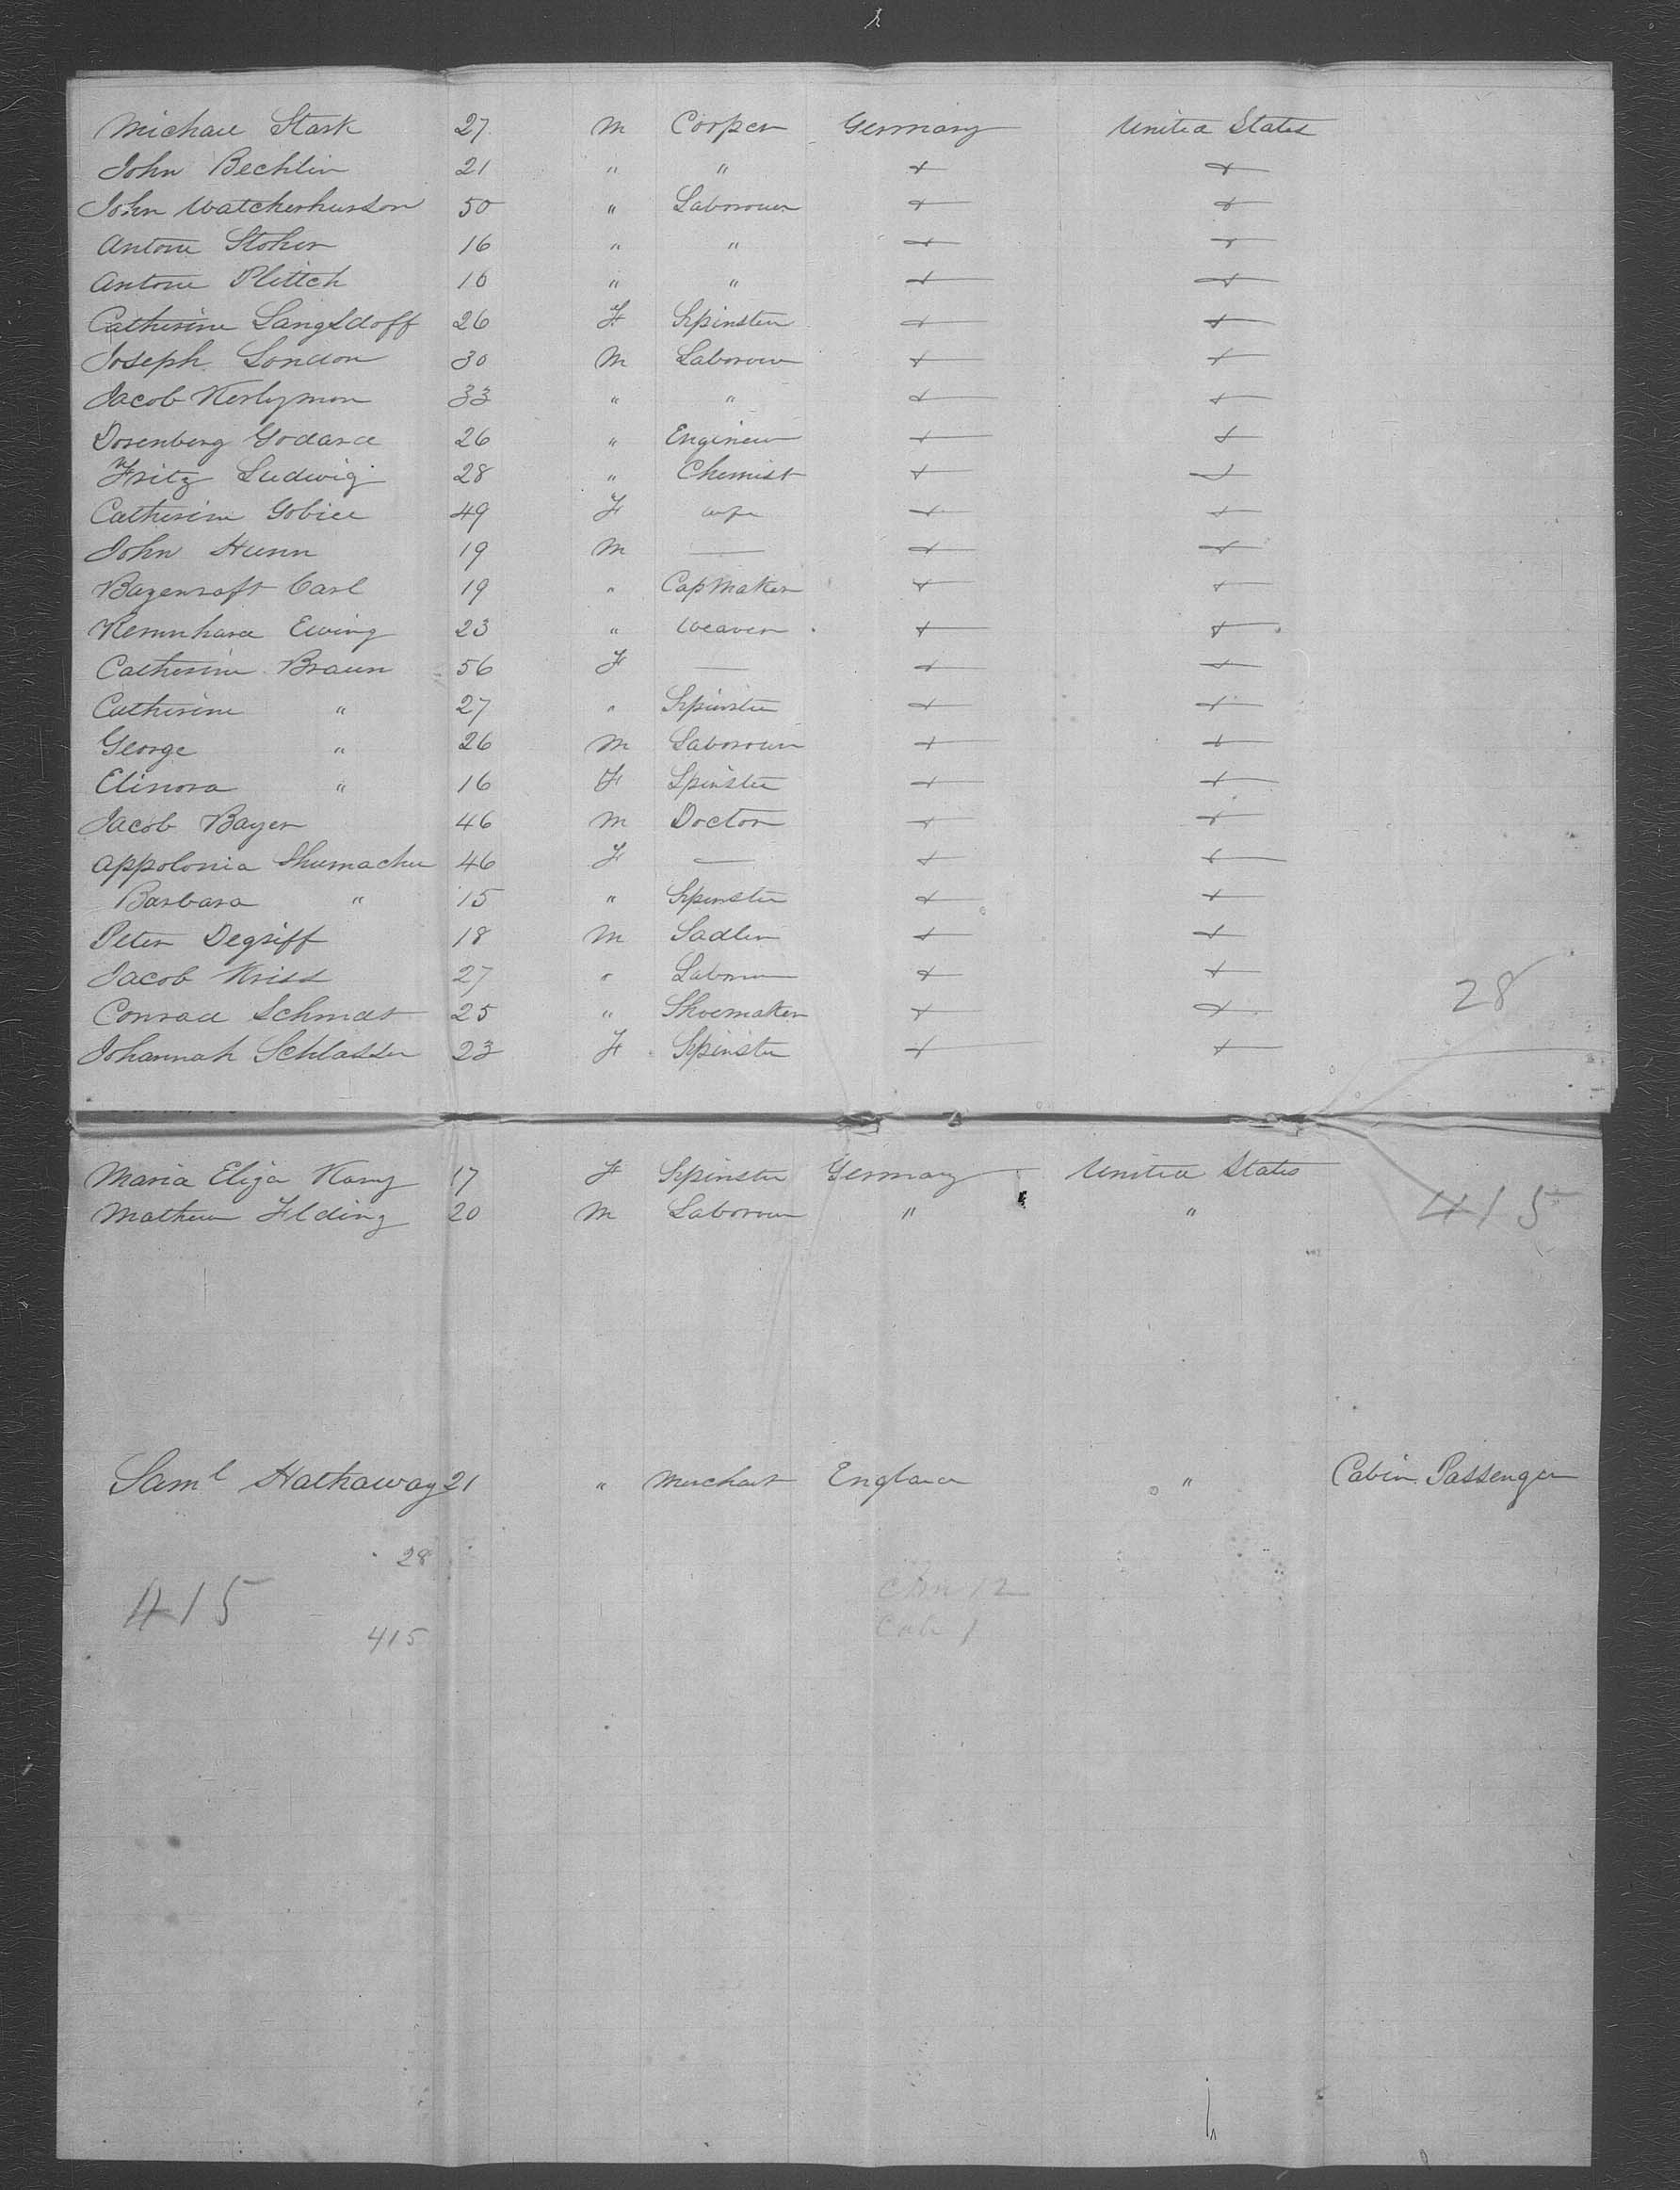 Michael Stark 27 M Cooper Germany United States
John Bechlin 21 " " + +
John Watcherhurson 50 " Laborour + +
Antone Stoker 16 " " + +
Antone Plittch 16 " " + +
Catherine Langsdoff 26 F Spinster + +
Joseph London 30 M Laborour + +
Jacob Kerlymon 33 " " + +
Dorenberg Godard 26 " Engineer + +
Fritz Ludwig 28 " Chemist + +
Catherine Gobiee 49 F wife + +
John Hunn 19 M — + +
Bazenraft Carl 19 " Cap Maker + +
Kernnhard Ewing 23 " Weaver + +
Catherine Braun 56 F — + +
Catherine " 27 " Spinster + +
George " 26 M Laborour + +
Elinora " 16 F Spinster + +
Jacob Bayer 46 M Doctor + +
Appolonia Shumacher 46 F — + +
Barbara " 15 " Spinster + +
Peter Degriff 18 M Sadler + +
Jacob Kriss 27 " Laborour + +
28
Conrad Schmdt 25 " Shoemaker + +
Johannah Schlasser 23 F Spinster + +
Maria Eliza Kany 17 F Spinster Germany United States
415
Mathew Ilding 20 M Laborour " "
Saml Hathaway 21 " Merchant England " Cabin Passenger
28
415
415
12
Cab 1